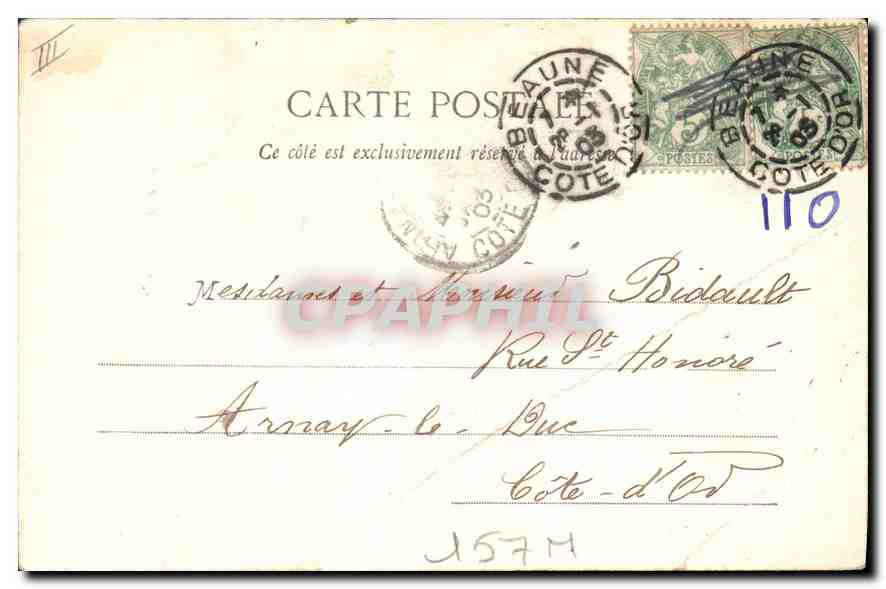 III
CARTE POSTALE
Ce côté est exclusivement réservé à l'adresse
BEAUNE
CÔTE D'OR
03
POSTES
BEAUNE
CÔTE D'OR
03
POSTES
110
03
CÔTE
CPAPHIL
Mesdames et Monsieur Bidault
Rue St Honoré
Arnay-le-Duc
Côte-d'Or
157M